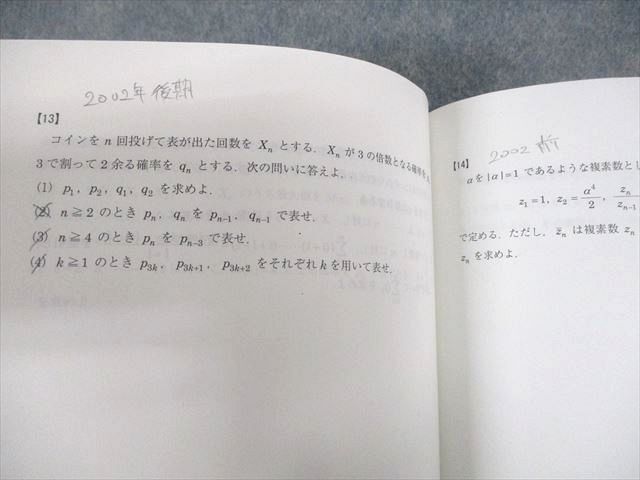 2002年 後期
【13】
コインを n 回投げて表が出た回数を Xₙ とする. Xₙ が 3 の倍数となる確率を
3で割って2余る確率を qₙ とする. 次の問いに答えよ.
(1) p₁, p₂, q₁, q₂ を求めよ.
(2) n≧2 のとき pₙ, qₙ を pₙ₋₁, qₙ₋₁ で表せ.
(3) n≧4 のとき pₙ を pₙ₋₃ で表せ.
(4) k≧1 のとき p₃ₖ, p₃ₖ₊₁, p₃ₖ₊₂ をそれぞれ k を用いて表せ.
2002 前
【14】
αを |α|=1 であるような複素数とし
z₁=1, z₂=α⁴/2, zₙ/zₙ₋₁
で定める. ただし, z̄ₙ は複素数 zₙ
zₙ を求めよ.